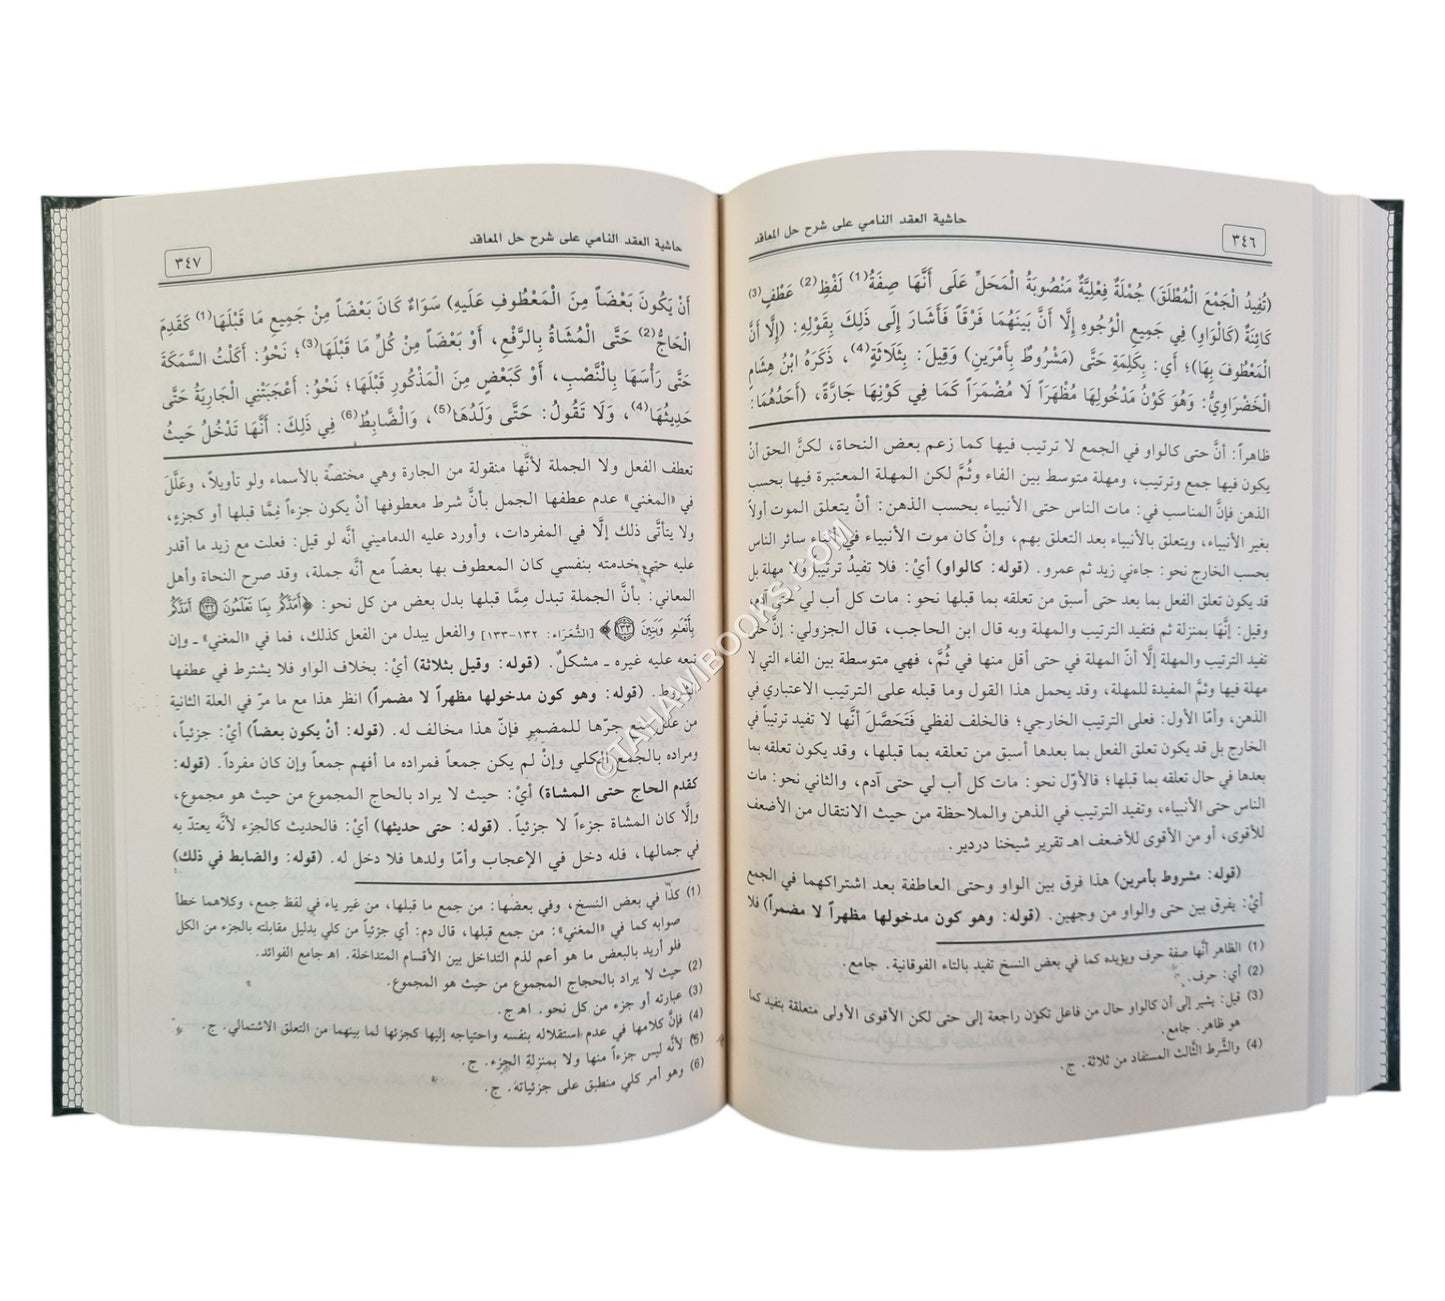 ٣٤٦
حاشية العقد النامي على شرح حل المعاقد
(تُفِيدُ الْجَمْعَ الْمُطْلَقَ) جُمْلَةٌ فِعْلِيَّةٌ مَنْصُوبَةُ الْمَحَلِّ عَلَى أَنَّهَا صِفَةُ(1) لَفْظِ(2) عَطْفٍ(3)
كَائِنَةٌ (كَالْوَاوِ) فِي جَمِيعِ الْوُجُوهِ إِلَّا أَنَّ بَيْنَهُمَا فَرْقَاً فَأَشَارَ إِلَى ذَلِكَ بِقَوْلِهِ: (إِلَّا أَنَّ
الْمَعْطُوفَ بِهَا)؛ أي: بِكَلِمَةِ حَتَّى (مَشْرُوطٌ بِأَمْرَينِ) وَقِيلَ: بِثَلَاثَةٍ(4)، ذَكَرَهُ ابْنُ هِشَامٍ
الْخَضْرَاوِيُّ: وَهُوَ كَوْنُ مَدْخُولِهَا مُظْهَرَاً لَا مُضْمَرَاً كَمَا فِي كَوْنِهَا جَارَّةً، (أَحَدُهُمَا:
ظاهراً: أنَّ حتى كالواو في الجمع لا ترتيب فيها كما زعم بعض النحاة، لكنَّ الحق أنْ
يكون فيها جمع وترتيب، ومهلة متوسط بين الفاء وثُمَّ لكن المهلة المعتبرة فيها بحسب
الذهن فإنَّ المناسب في: مات الناس حتى الأنبياء بحسب الذهن: أنْ يتعلق الموت أولاً
بغير الأنبياء، ويتعلق بالأنبياء بعد التعلق بهم، وإنْ كان موت الأنبياء في أثناء سائر الناس
بحسب الخارج نحو: جاءني زيد ثم عمرو. (قوله: كالواو) أيْ: فلا تفيدُ ترتيباً ولا مهلة بل
قد يكون تعلق الفعل بما بعد حتى أسبق من تعلقه بما قبلها نحو: مات كل أب لي حتى آدم،
وقيل: إنَّها بمنزلة ثم فتفيد الترتيب والمهلة وبه قال ابن الحاجب، قال الجزولي: إنَّ حتى
تفيد الترتيب والمهلة إلَّا أنّ المهلة في حتى أقل منها في ثُمَّ، فهي متوسطة بين الفاء التي لا
مهلة فيها وثمَّ المفيدة للمهلة، وقد يحمل هذا القول وما قبله على الترتيب الاعتباري في
الذهن، وأمّا الأول: فعلى الترتيب الخارجي؛ فالخلف لفظي فَتَحَصَّلَ أنَّها لا تفيد ترتيباً في
الخارج بل قد يكون تعلق الفعل بما بعدها أسبق من تعلقه بما قبلها، وقد يكون تعلقه بما
بعدها في حال تعلقه بما قبلها؛ فالأوّل نحو: مات كل أب لي حتى آدم، والثاني نحو: مات
الناس حتى الأنبياء، وتفيد الترتيب في الذهن والملاحظة من حيث الانتقال من الأضعف
للأقوى، أو من الأقوى للأضعف اهـ تقرير شيخنا دردير.
(قوله: مشروط بأمرين) هذا فرق بين الواو وحتى العاطفة بعد اشتراكهما في الجمع
أيْ: يفرق بين حتى والواو من وجهين. (قوله: وهو كون مدخولها مظهراً لا مضمراً) فلا
(1) الظاهر أنَّها صفة حرف ويؤيده كما في بعض النسخ تفيد بالتاء الفوقانية. جامع.
(2) أي: حرف.
(3) قيل: يشير إلى أن كالواو حال من فاعل تكون راجعة إلى حتى لكن الأقوى الأولى متعلقة بتفيد كما
هو ظاهر. جامع.
(4) والشَّرط الثَّالث المستفاد من ثلاثة. ج.
٣٤٧
حاشية العقد النامي على شرح حل المعاقد
أَنْ يَكُونَ بَعْضَاً مِنَ الْمَعْطُوفِ عَلَيهِ) سَوَاءٌ كَانَ بَعْضَاً مِنْ جَمِيعِ مَا قَبْلَهَا(1) كَقَدِمَ
الْحَاجُّ(2) حَتَّى الْمُشَاةُ بِالرَّفْعِ، أَوْ بَعْضَاً مِنْ كُلِّ مَا قَبْلَهَا(3)؛ نَحْوُ: أَكَلْتُ السَّمَكَةَ
حَتَّى رَأْسَهَا بِالنَّصْبِ، أَوْ كَبَعْضٍ مِنَ الْمَذْكُورِ قَبْلَهَا؛ نَحْوُ: أَعْجَبَتْنِي الْجَارِيَةُ حَتَّى
حَدِيثُهَا(4)، وَلَا تَقُولُ: حَتَّى وَلَدُهَا(5)، وَالضَّابِطُ(6) فِي ذَلِكَ: أَنَّهَا تَدْخُلُ حَيثُ
تعطف الفعل ولا الجملة لأنَّها منقولة من الجارة وهي مختصّة بالأسماء ولو تأويلاً، وعَلَّلَ
في «المغني» عدم عطفها الجمل بأنَّ شرط معطوفها أنْ يكون جزءاً مِمَّا قبلها أو كجزءٍ،
ولا يتأتَّى ذلك إلَّا في المفردات، وأورد عليه الدماميني أنَّه لو قيل: فعلت مع زيد ما أقدر
عليه حتى خدمته بنفسي كان المعطوف بها بعضاً مع أنَّه جملة، وقد صرح النحاة وأهل
المعاني: بأنَّ الجملة تبدل مِمَّا قبلها بدل بعض من كل نحو: ﴿أَمَدَّكُم بِمَا تَعْلَمُونَ ١٣٢ أَمَدَّكُم
بِأَنْعَٰمٍ وَبَنِينَ ١٣٣﴾ [الشُّعَرَاء: ١٣٢-١٣٣] والفعل يبدل من الفعل كذلك، فما في «المغني» ـ وإن
تبعه عليه غيره ـ مشكلٌ. (قوله: وقيل بثلاثة) أيْ: بخلاف الواو فلا يشترط في عطفها
شروط. (قوله: وهو كون مدخولها مظهراً لا مضمراً) انظر هذا مع ما مرّ في العلة الثانية
من علل منع جرّها للمضمر فإنّ هذا مخالف له. (قوله: أنْ يكون بعضاً) أيْ: جزئياً،
ومراده بالجمع الكلي وإنْ لم يكن جمعاً فمراده ما أفهم جمعاً وإن كان مفرداً. (قوله:
كقدم الحاج حتى المشاة) أيْ: حيث لا يراد بالحاج المجموع من حيث هو مجموع،
وإلَّا كان المشاة جزءاً لا جزئياً. (قوله: حتى حديثها) أيْ: فالحديث كالجزء لأنَّه يعتدّ به
في جمالها، فله دخل في الإعجاب وأمّا ولدها فلا دخل له. (قوله: والضابط في ذلك)
(1) كذا في بعض النسخ، وفي بعضها: من جمع ما قبلها، من غير ياء في لفظ جمع، وكلاهما خطأ
صوابه كما في «المغني»: من جمع قبلها، قال دم: أي جزئياً من كلي بدليل مقابلته بالجزء من الكل
فلو أريد بالبعض ما هو أعم لذم التداخل بين الأقسام المتداخلة. اهـ جامع الفوائد.
(2) حيث لا يراد بالحجاج المجموع من حيث هو المجموع.
(3) عبارته أو جزء من كل نحو. اهـ ج.
(4) فإنَّ كلامها في عدم استقلاله بنفسه واحتياجه إليها كجزئها لما بينهما من التعلق الاشتمالي. ج.
(5) لأنَّه ليس جزءاً منها ولا بمنزلة الجزء. ج.
(6) وهو أمر كلي منطبق على جزئياته. ج.
©TAHAMIBOOKS.COM